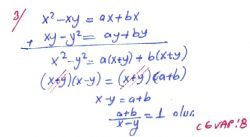 3/
x² - xy = ax + bx
+ xy - y² = ay + by
x² - y² = a(x+y) + b(x+y)
(x+y)(x-y) = (x+y)(a+b)
x - y = a + b
a+b / x-y = 1 olur.
CEVAP: B